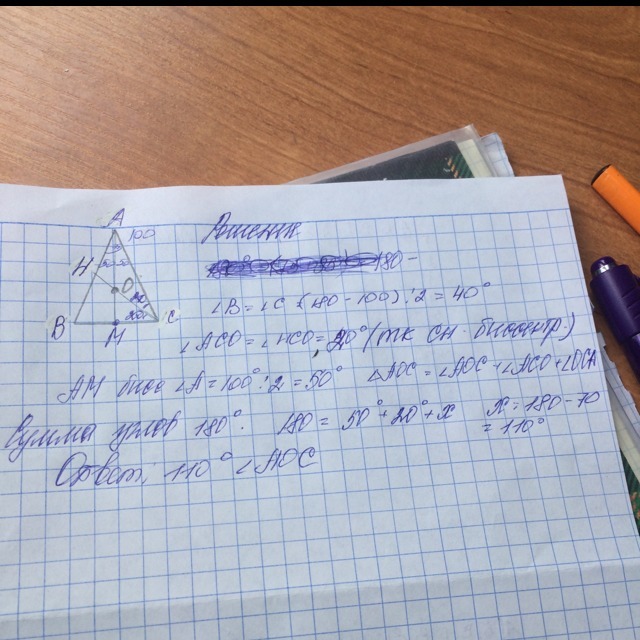 A
100
Решение
H
180-
O
∠B = ∠C (180 - 100) : 2 = 40°
B
M
20°
C
∠ACO = ∠HCO = 20° (тк CH - биссектр.)
AM бисс ∠A = 100° : 2 = 50°
△AOC = ∠AOC + ∠ACO +
Сумма углов 180°. 180 = 50° + 20° + x
x = 180 - 70
= 110°
Ответ: 110° ∠AOC